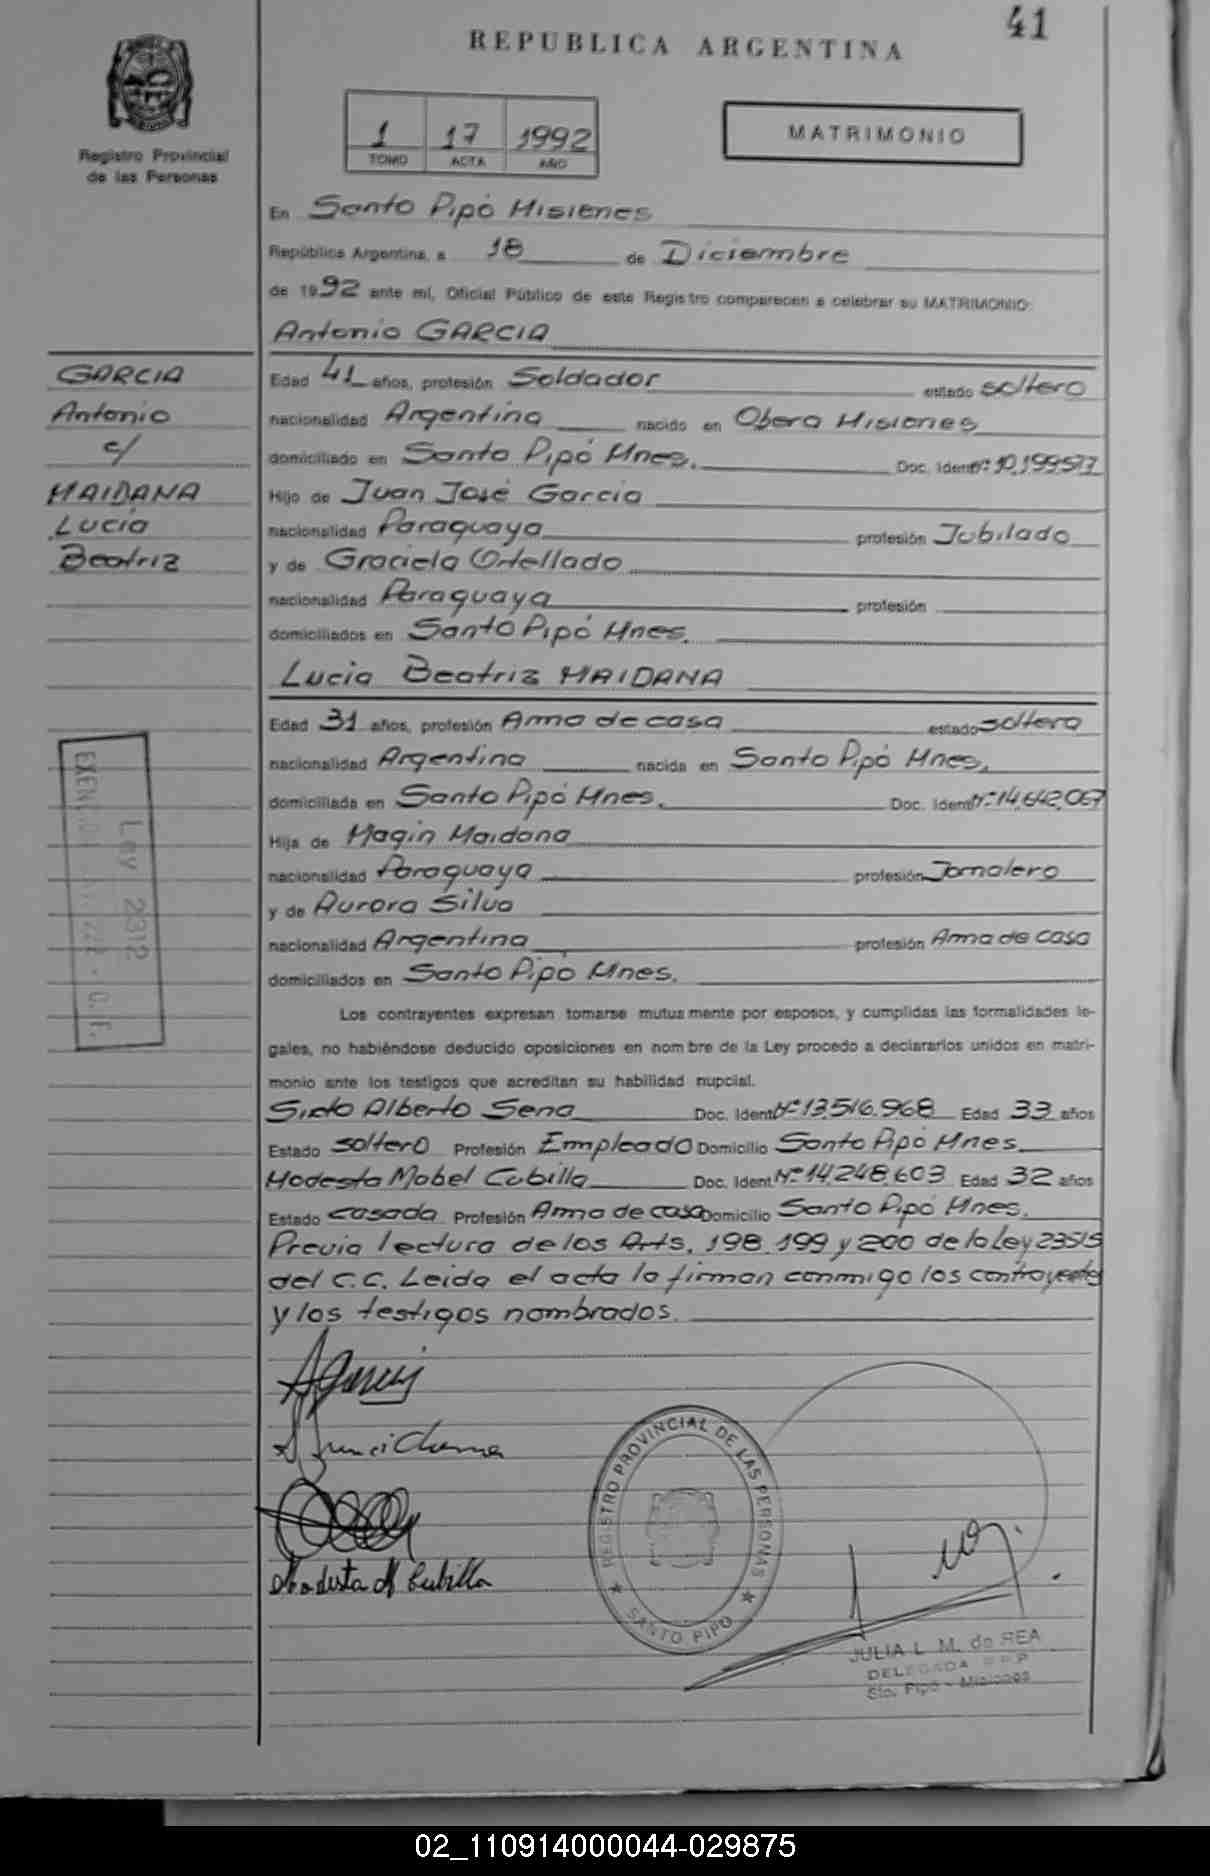 41
REPUBLICA ARGENTINA
Registro Provincial
de las Personas
1 17 1992
TOMO ACTA AÑO
MATRIMONIO
En Santo Pipó Misiones
República Argentina, a 18 de Diciembre
de 1992 ante mí, Oficial Público de este Registro comparecen a celebrar su MATRIMONIO:
Antonio GARCIA
GARCIA
Antonio
c/
MAIDANA
Lucia
Beatriz
Edad 41 años, profesión Soldador estado soltero
nacionalidad Argentina nacido en Obera Misiones
domiciliado en Santo Pipó Mnes. Doc. Ident Nº 10.199.577
Hijo de Juan José Garcia
nacionalidad Paraguaya profesión Jubilado
y de Graciela Ortellado
nacionalidad Paraguaya profesión
domiciliados en Santo Pipó Mnes.
Lucia Beatriz MAIDANA
Edad 31 años, profesión Ama de casa estado soltera
nacionalidad Argentina nacida en Santo Pipó Mnes.
domiciliada en Santo Pipó Mnes. Doc. Ident Nº 14.642.067
Hija de Magin Maidana
nacionalidad Paraguaya profesión Jornalero
y de Aurora Silva
nacionalidad Argentina profesión Ama de casa
domiciliados en Santo Pipó Mnes.
Ley 2312
Los contrayentes expresan tomarse mutuamente por esposos, y cumplidas las formalidades le-
gales, no habiéndose deducido oposiciones en nombre de la Ley procedo a declararlos unidos en matri-
monio ante los testigos que acreditan su habilidad nupcial.
Sixto Alberto Sena Doc. Ident Nº 13.516.968 Edad 33 años
Estado soltero Profesión Empleado Domicilio Santo Pipó Mnes.
Modesta Mabel Cubilla Doc. Ident Nº 14.248.603 Edad 32 años
Estado casada Profesión Ama de casa Domicilio Santo Pipó Mnes.
Previa lectura de los Arts. 198 199 y 200 de la Ley 23515
del C.C. Leida el acta la firman conmigo los contrayentes
y los testigos nombrados.
A Garcia
Modesta M Cubilla
REGISTRO PROVINCIAL DE LAS PERSONAS
SANTO PIPO
JULIA L. M. de REA
DELEGADA R.P.P
Sto. Pipó - Misiones
02_110914000044-029875